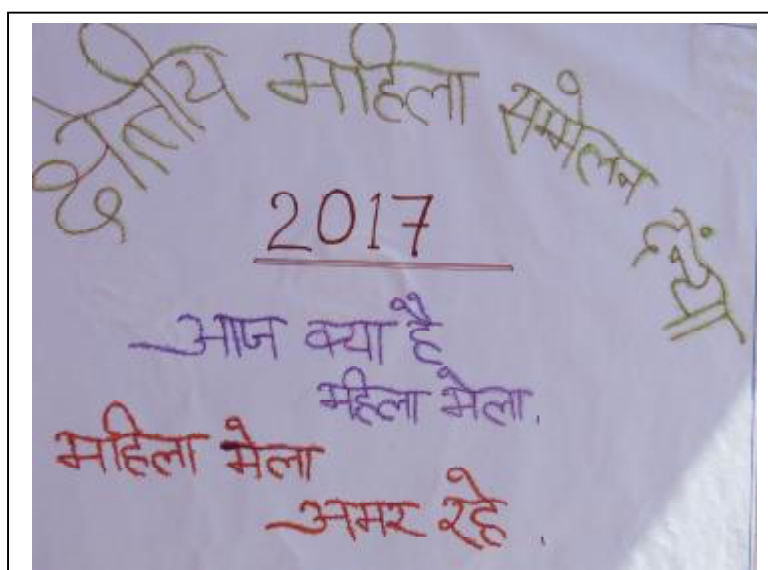 महिला सम्मेलन
2017
आज क्या है
महिला मेला.
महिला मेला
अमर रहे.